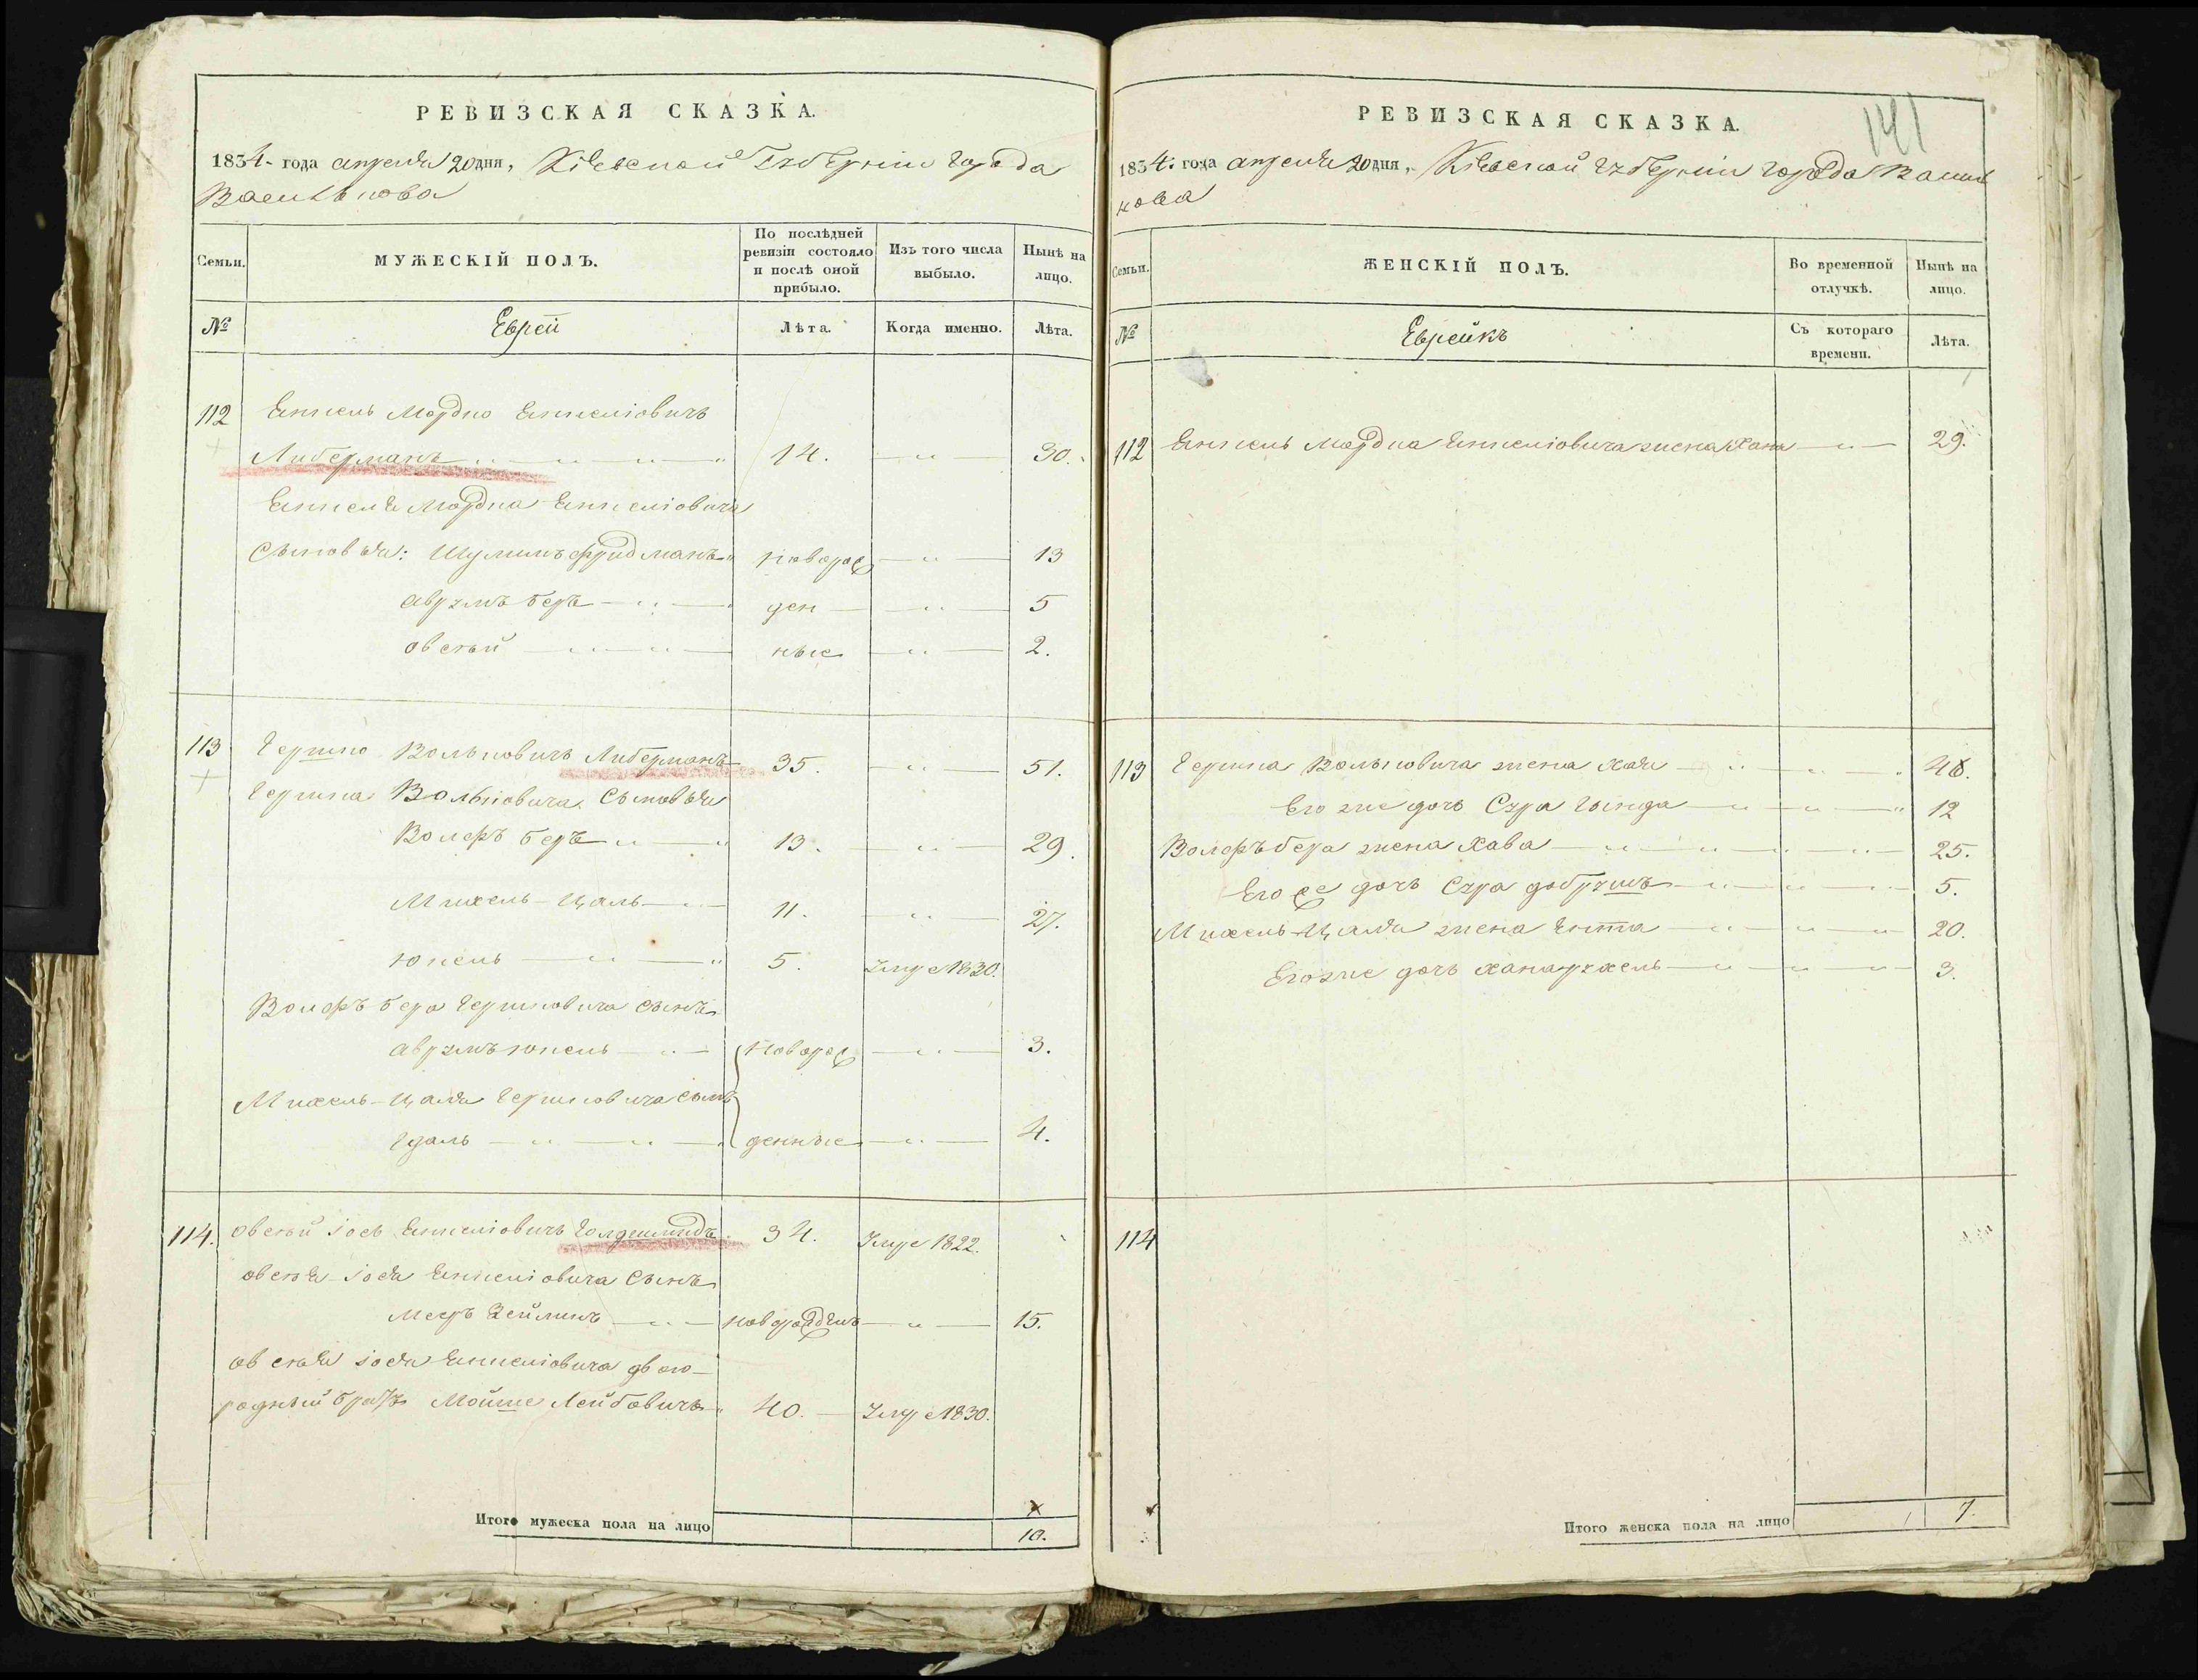 РЕВИЗСКАЯ СКАЗКА.
1834 года апреля 20 дня, Кіевской Губерніи города
Василькова
Семьи.
МУЖЕСКІЙ ПОЛЪ.
По послѣдней ревизіи состояло и послѣ оной прибыло.
Изъ того числа выбыло.
Нынѣ на лицо.
№
Еврей
Лѣта.
Когда именно.
Лѣта.
112 Мордко
Либерманъ 14. 30.
Мордка
Сыновья: Фридманъ новорож 13
Аврумъ Беръ ден 5
Овсей ные 2.
113 Гершко Вольковичъ Либерманъ 35. 51.
Гершка Вольковича Сыновья
Волефъ Беръ 13. 29.
Михель-Цаль 11. 27.
Юкель 5. Умре 1830.
Волефъ Бера Гершковича Сынъ
Аврумъ Юкель Новорож 3.
Михель-Цаля Гершковича Сынъ
Удаль денные 4.
114. Овсей Іось Голдшмидъ 34. Умре 1822.
Овсея Іося Сынъ
Мееръ Зейликъ новорожденъ 15.
Овсея Іося двою-
родный братъ Мошке Лейбовичъ 40. Умре 1830.
Итого мужеска пола на лицо 10.
РЕВИЗСКАЯ СКАЗКА.
141
1834 года апреля 20 дня, Кіевской Губерніи города Василь
кова
Семьи.
ЖЕНСКІЙ ПОЛЪ.
Во временной отлучкѣ.
Нынѣ на лицо.
№
Еврейкъ
Съ котораго времени.
Лѣта.
112 Мордка жена Хана 29.
113 Гершка Вольковича жена Хая 48.
Его же дочь Сура Гинда 12
Волефъ Бера жена Хава 25.
Его же дочь Сура Добрушъ 5.
Михель-Цаля жена Ента 20.
Его же дочь Хана Рухель 3.
114
Итого женска пола на лицо 7.